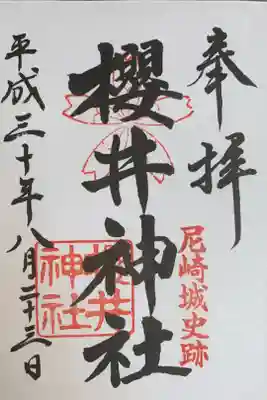 奉拝
尼崎城史跡
櫻井神社
櫻井
神社
平成三十年八月二十三日